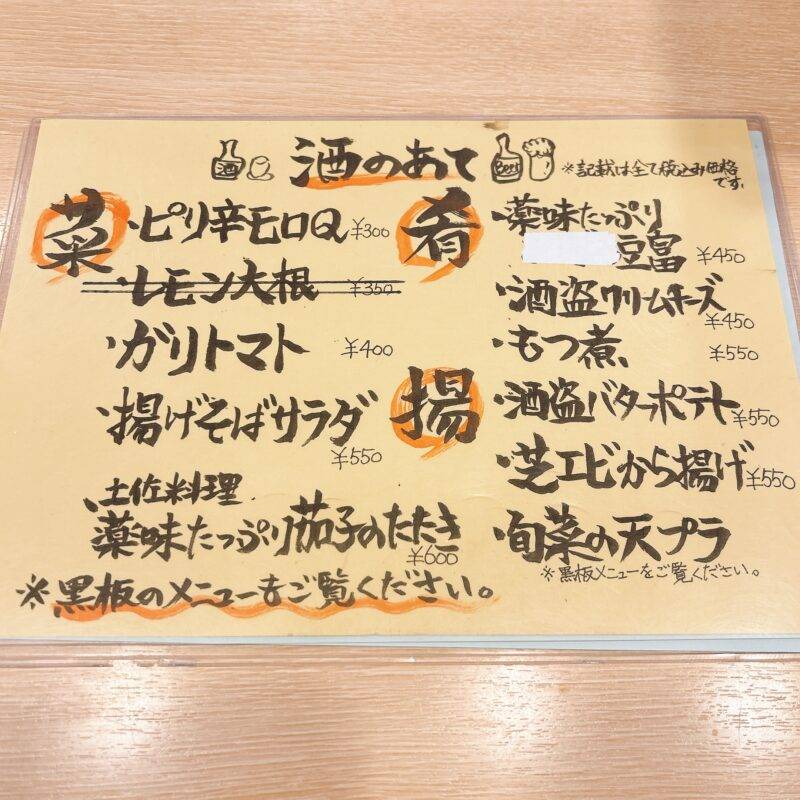 酒のあて
酒
Beer
※記載は全て税込み価格
です。
菜
・ピリ辛モロQ ¥300
・レモン大根 ¥350
・ガリトマト ¥400
・揚げそばサラダ
¥550
、土佐料理
薬味たっぷり茄子のたたき
¥600
※黒板のメニューもご覧ください。
肴
・薬味たっぷり
豆富 ¥450
・酒盗クリームチーズ
¥450
・もつ煮 ¥550
揚
・酒盗バターポテト ¥550
・芝エビから揚げ ¥550
・旬菜の天プラ
※黒板メニューをご覧ください。